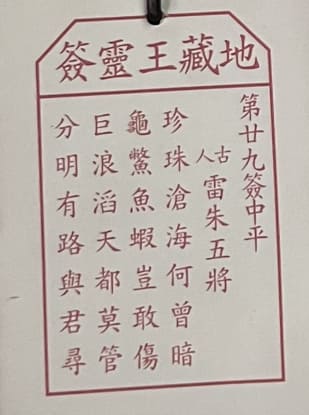 地藏王靈簽
第廿九簽中平
古人雷朱五將
珍珠滄海何曾暗
龜鱉魚蝦豈敢傷
巨浪滔天都莫管
分明有路與君尋